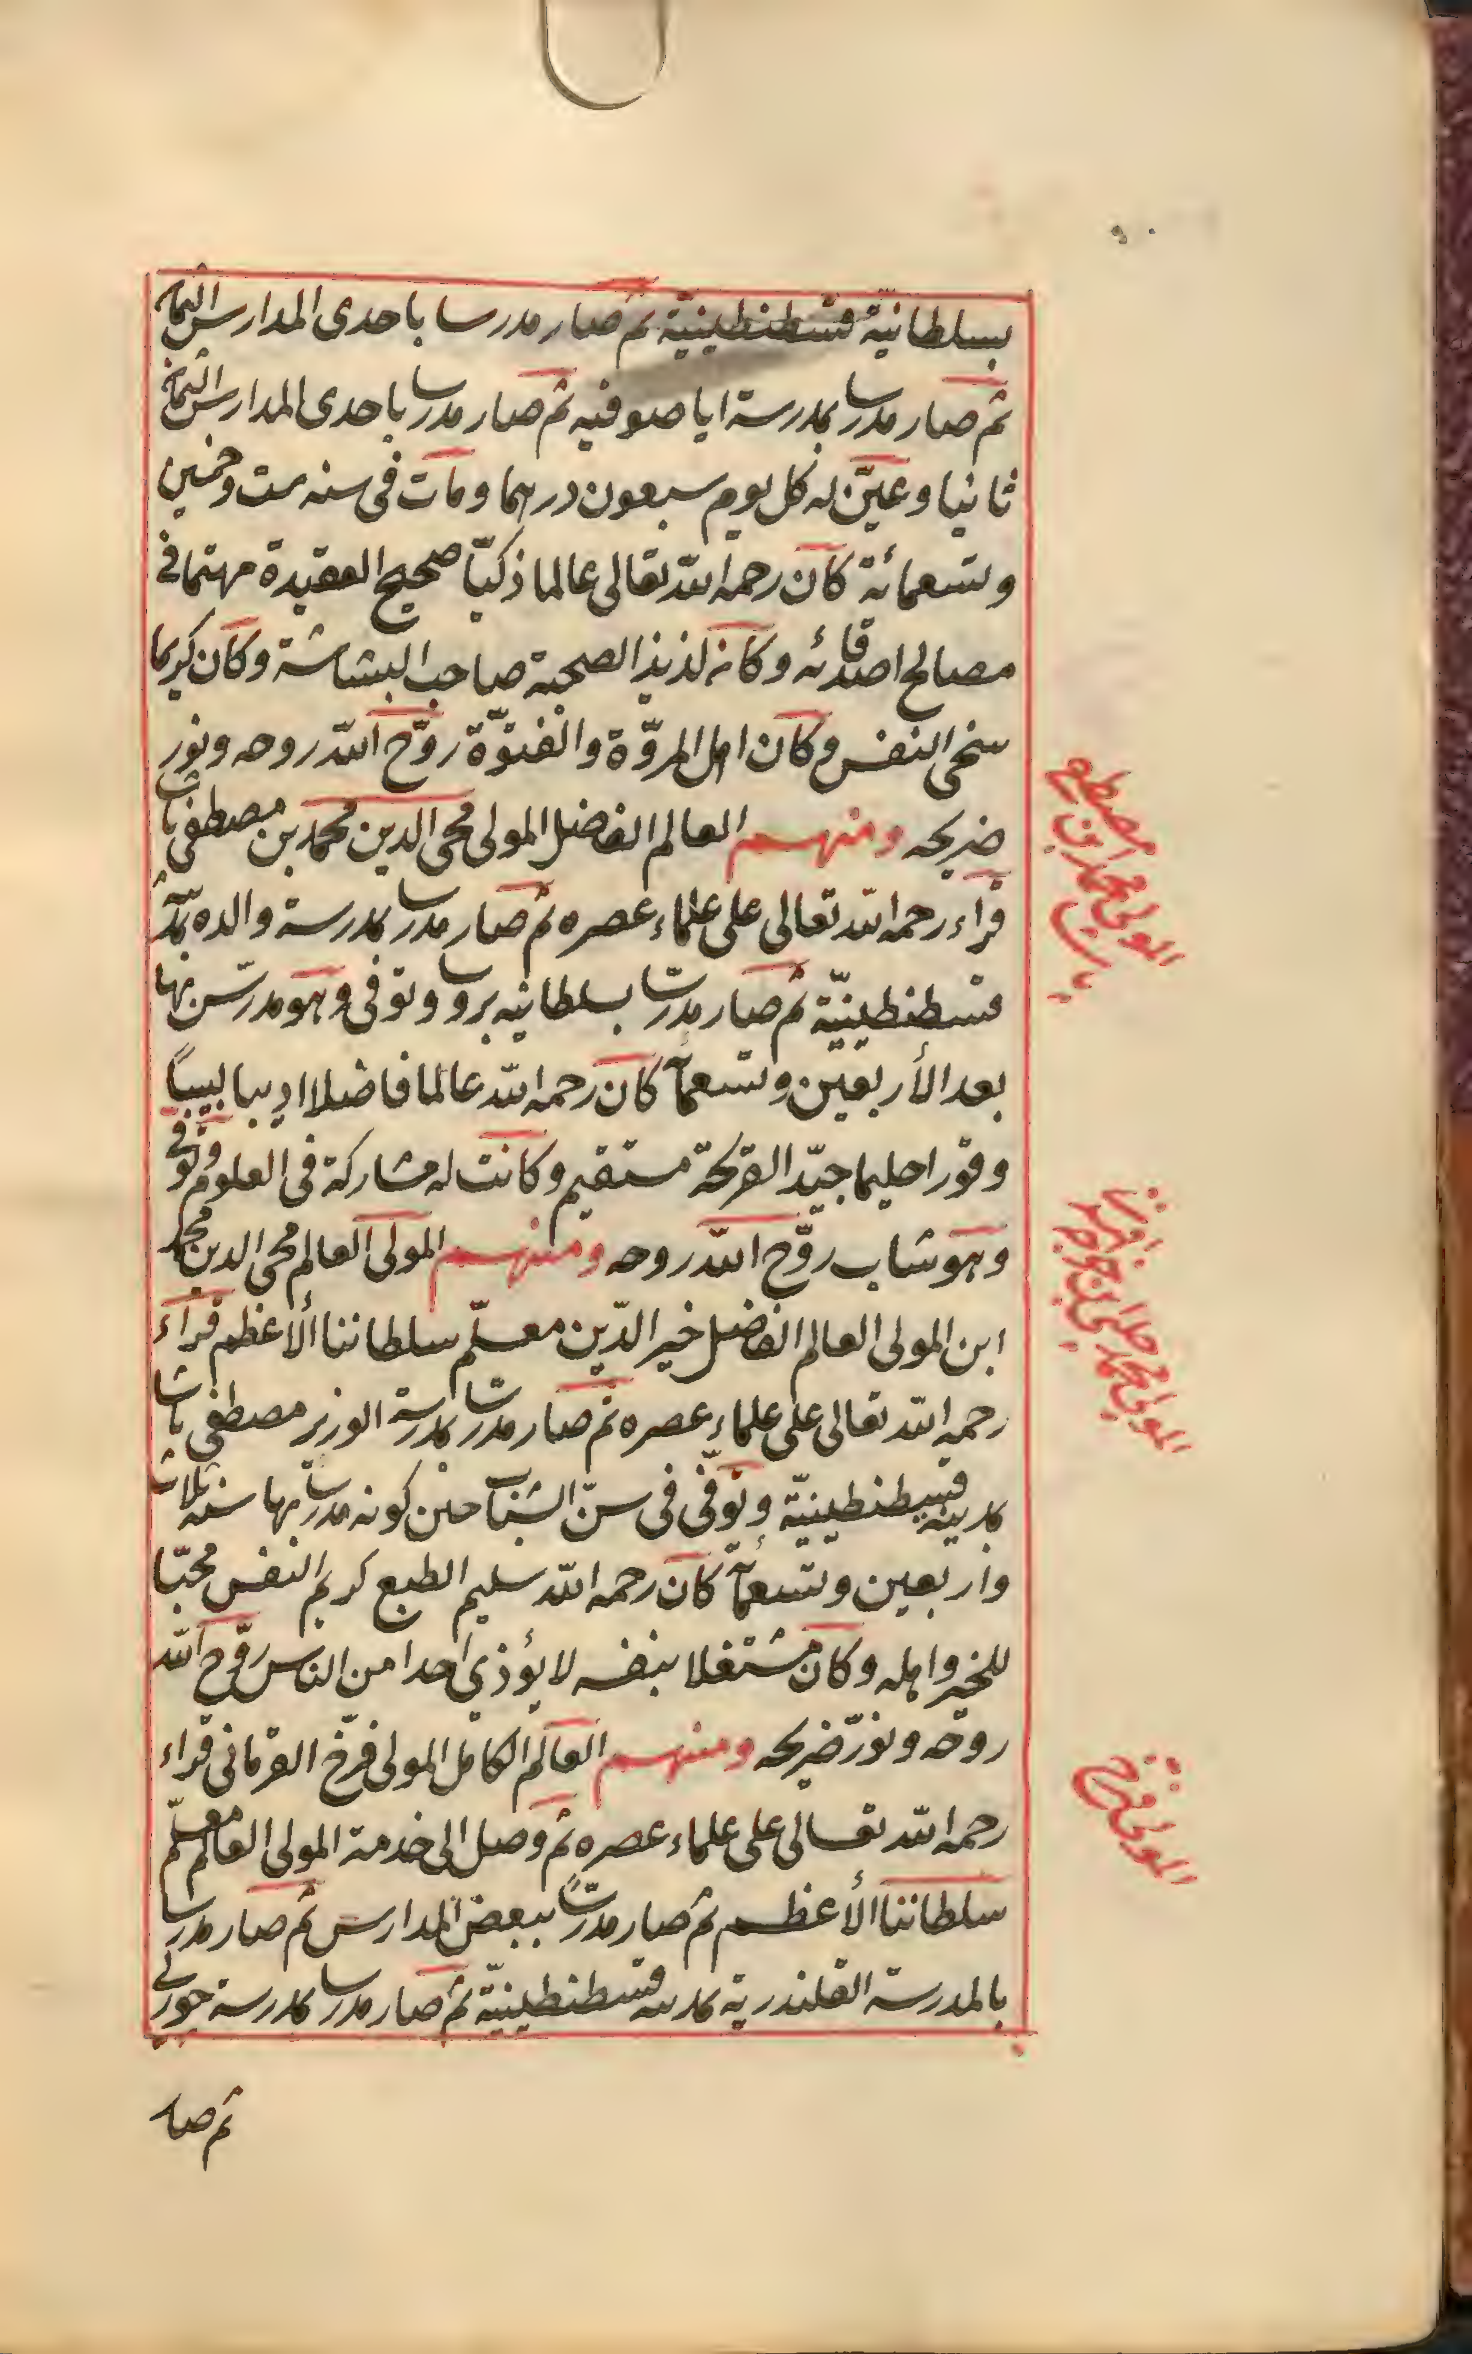 بسلطانية قسطنطينية ثم صار مدرسا باحدى المدارس الثمان
ثم صار مدرسا بمدرسة ايا صوفيه ثم صار مدرسا باحدى المدارس الثمان
ثانيا وعيّن له كل يوم سبعون درهما ومات فى سنه ست وخمسين
وتسعمائة كان رحمه الله تعالى عالما ذكيّا صحيح العقيدة مهتما فى
مصالح اصدقائه وكانه لذيذ الصحبة صاحب البشاشة وكان كريما
سخى النفس وكان اهل المروّة والفتوّة روّح الله روحه ونور
ضريحه ومنهم العالم الفاضل المولى محى الدين محمد بن مصطفى باشا
قراء رحمه الله تعالى على علماء عصره ثم صار مدرسا بمدرسة والده بمدينة
قسطنطينيّة ثم صار مدرسا بسلطانيه بروسا وتوفى وهو مدرّس بها
بعد الأربعين وتسعمائة كان رحمه الله عالما فاضلا اديبا لبيباً
وقورا حليما جيّد القريحة مستقيم وكانت له مشاركة فى العلوم وتوفى
وهو شاب روّح الله روحه ومنهم المولى العالم محى الدين محمد
ابن المولى العالم الفاضل خير الدّين معلّم سلطاننا ألأعظم قراء
رحمه الله تعالى على علماء عصره ثم صار مدرسا بمدرسة الوزير مصطفى باشا
بمدينه قسطنطينيّة وتوفّى فى سنّ الشباب حين كونه مدرسا بها سنه ثلاث
واربعين وتسعمائة كان رحمه الله سليم الطبع كريم النفس محبّا
للخير واهله وكان مشتغلا بنفسه لا يؤذي احدا من الناس روّح الله
روحه ونوّر ضريحه ومنهم العالم الكامل المولى فرّخ القرمانى قراء
رحمه الله تعالى على علماء عصره ثم وصل الى خدمة المولى العالم معلّم
سلطاننا الأعظم ثم صار مدرساً ببعض المدارس ثم صار مدرسا
بالمدرسة القلندرية بمدينه قسطنطينيّة ثم صار مدرسا بمدرسة جورلى
ثم صار
المولى محمد بن مصطفى
باشا
المولى محمد جلبى بن خواجه
خير الدين افندى
المولى فرخ